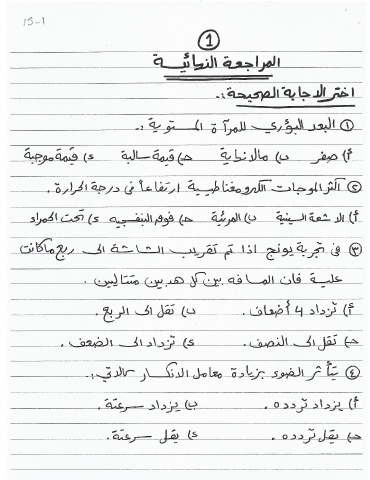 15-1
1
المراجعة النهائية
اختر الاجابة الصحيحة:-
① البعد البؤري للمرآة المستوية :-
أ) صفر ب) مالانهاية حـ) قيمة سالبة د) قيمة موجبة
② أكثر الموجات الكهرومغناطيسية ارتفاعاً في درجة الحرارة.
أ) الاشعة السينية ب) المرئية حـ) فوق البنفسجيه د) تحت الحمراء
③ في تجربة يونج اذا تم تقريب الشاشة الى ربع ماكانت
علية فان المسافه بين كل هدبين متتاليين .
أ) تزداد 4 أضعاف. ب) تقل الى الربع.
حـ) تقل الى النصف. د) تزداد الى الضعف.
④ يتأثر الضوء بزيادة معامل الانكسار كالاتي:-
أ) يزداد تردده . ب) يزداد سرعتة.
حـ) يقل تردده . د) يقل سرعتة.